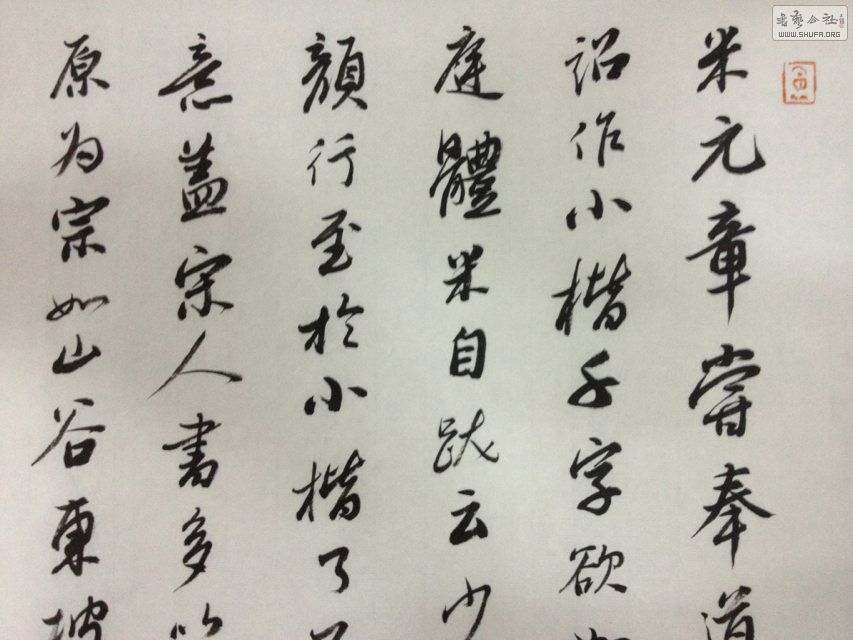 米元章嘗奉道
詔作小楷千字欲
庭體米自跋云少
顏行至於小楷了
意蓋宋人書多以
原为宗如山谷東坡
書藝公社
WWW.SHUFA.ORG